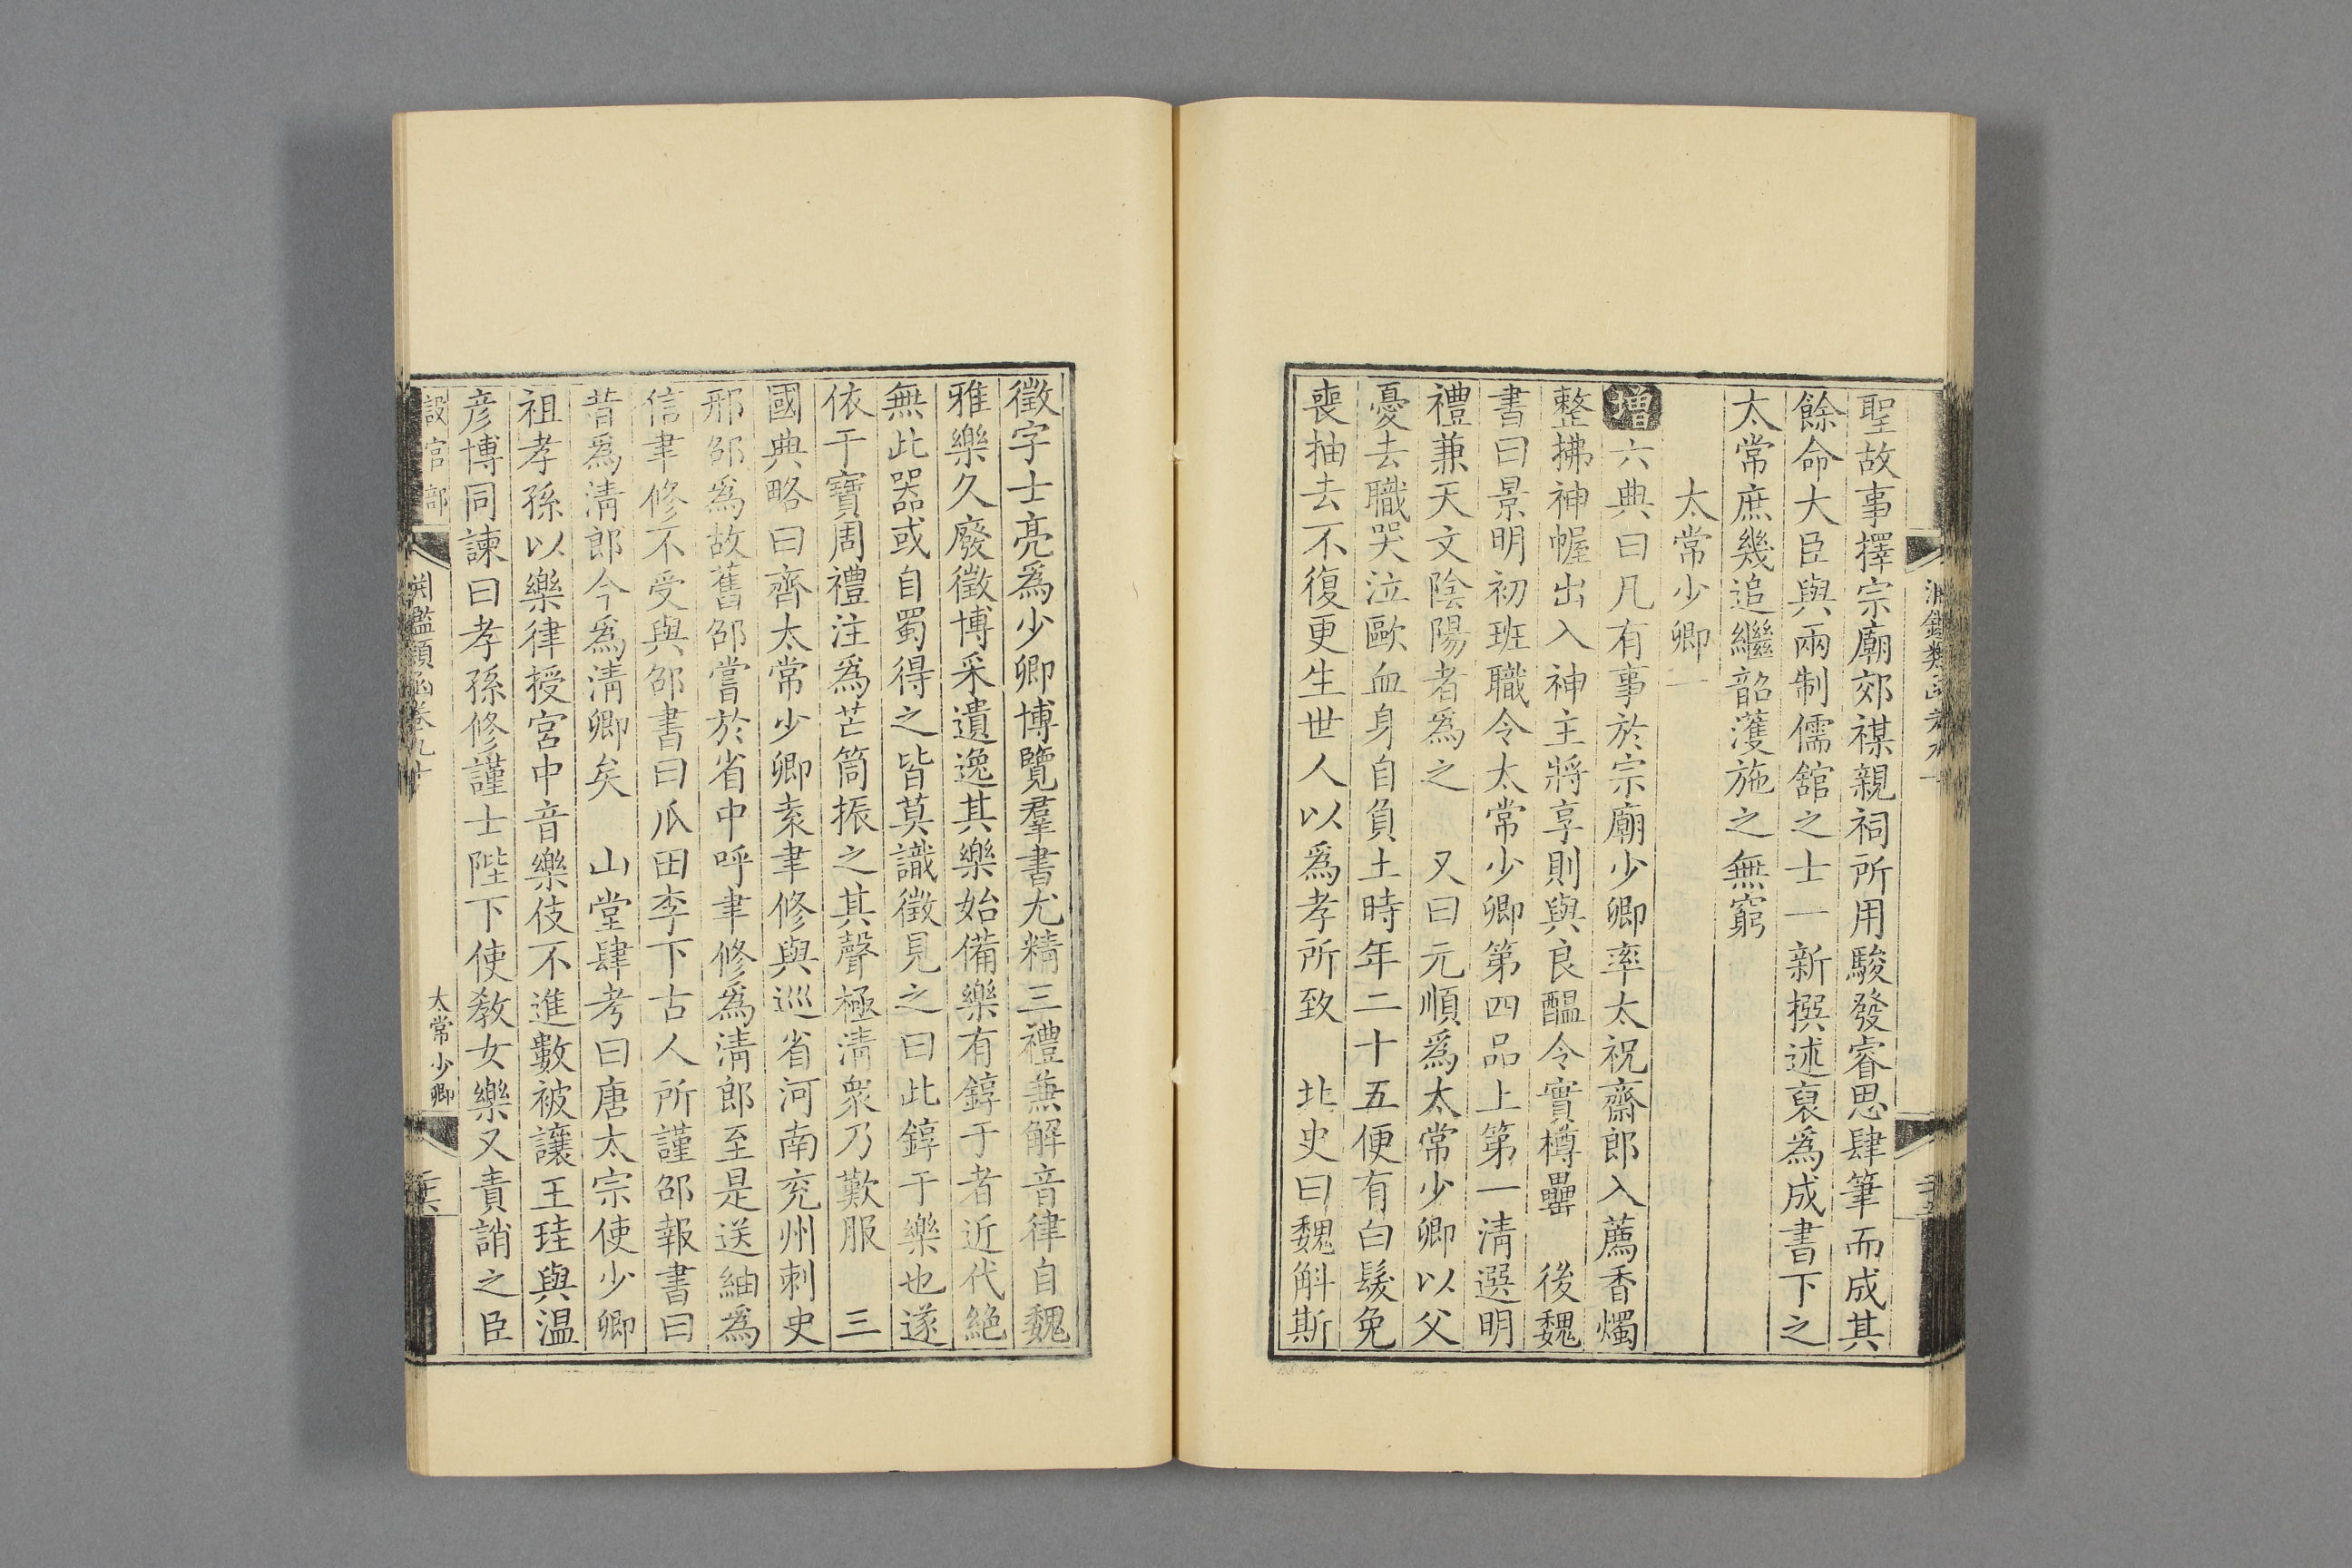 聖故事擇宗廟郊禖親祠所用駿發睿思肆筆而成其
餘命大臣與兩制儒舘之士一新撰述裒爲成書下之
太常庶幾追繼韶濩施之無窮
太常少卿一
增六典曰凡有事於宗廟少卿率太祝齋郎入薦香燭
整拂神幄出入神主將享則與良醞令實樽罍 後魏
書曰景明初班職令太常少卿第四品上第一淸選明
禮兼天文陰陽者爲之 又曰元順爲太常少卿以父
憂去職哭泣歐血身自負土時年二十五便有白髮免
喪抽去不復更生世人以爲孝所致 北史曰魏斛斯
徵字士亮爲少卿博覽羣書尤精三禮兼解音律自魏
雅樂久廢徵博采遺逸其樂始備樂有錞于者近代絕
無此器或自蜀得之皆莫識徵見之曰此錞于樂也遂
依干寶周禮注爲芒筒振之其聲極淸衆乃歎服 三
國典略曰齊太常少卿袁聿修與巡省河南兖州刺史
邢邵爲故舊邵嘗於省中呼聿修爲淸郎至是送紬爲
信聿修不受與邵書曰瓜田李下古人所謹邵報書曰
昔爲淸郎今爲淸卿矣 山堂肆考曰唐太宗使少卿
祖孝孫以樂律授宮中音樂伎不進數被讓王珪與温
彦博同諫曰孝孫修謹士陛下使敎女樂又責誚之臣
設官部
淵鑑類函卷九十
太常少卿